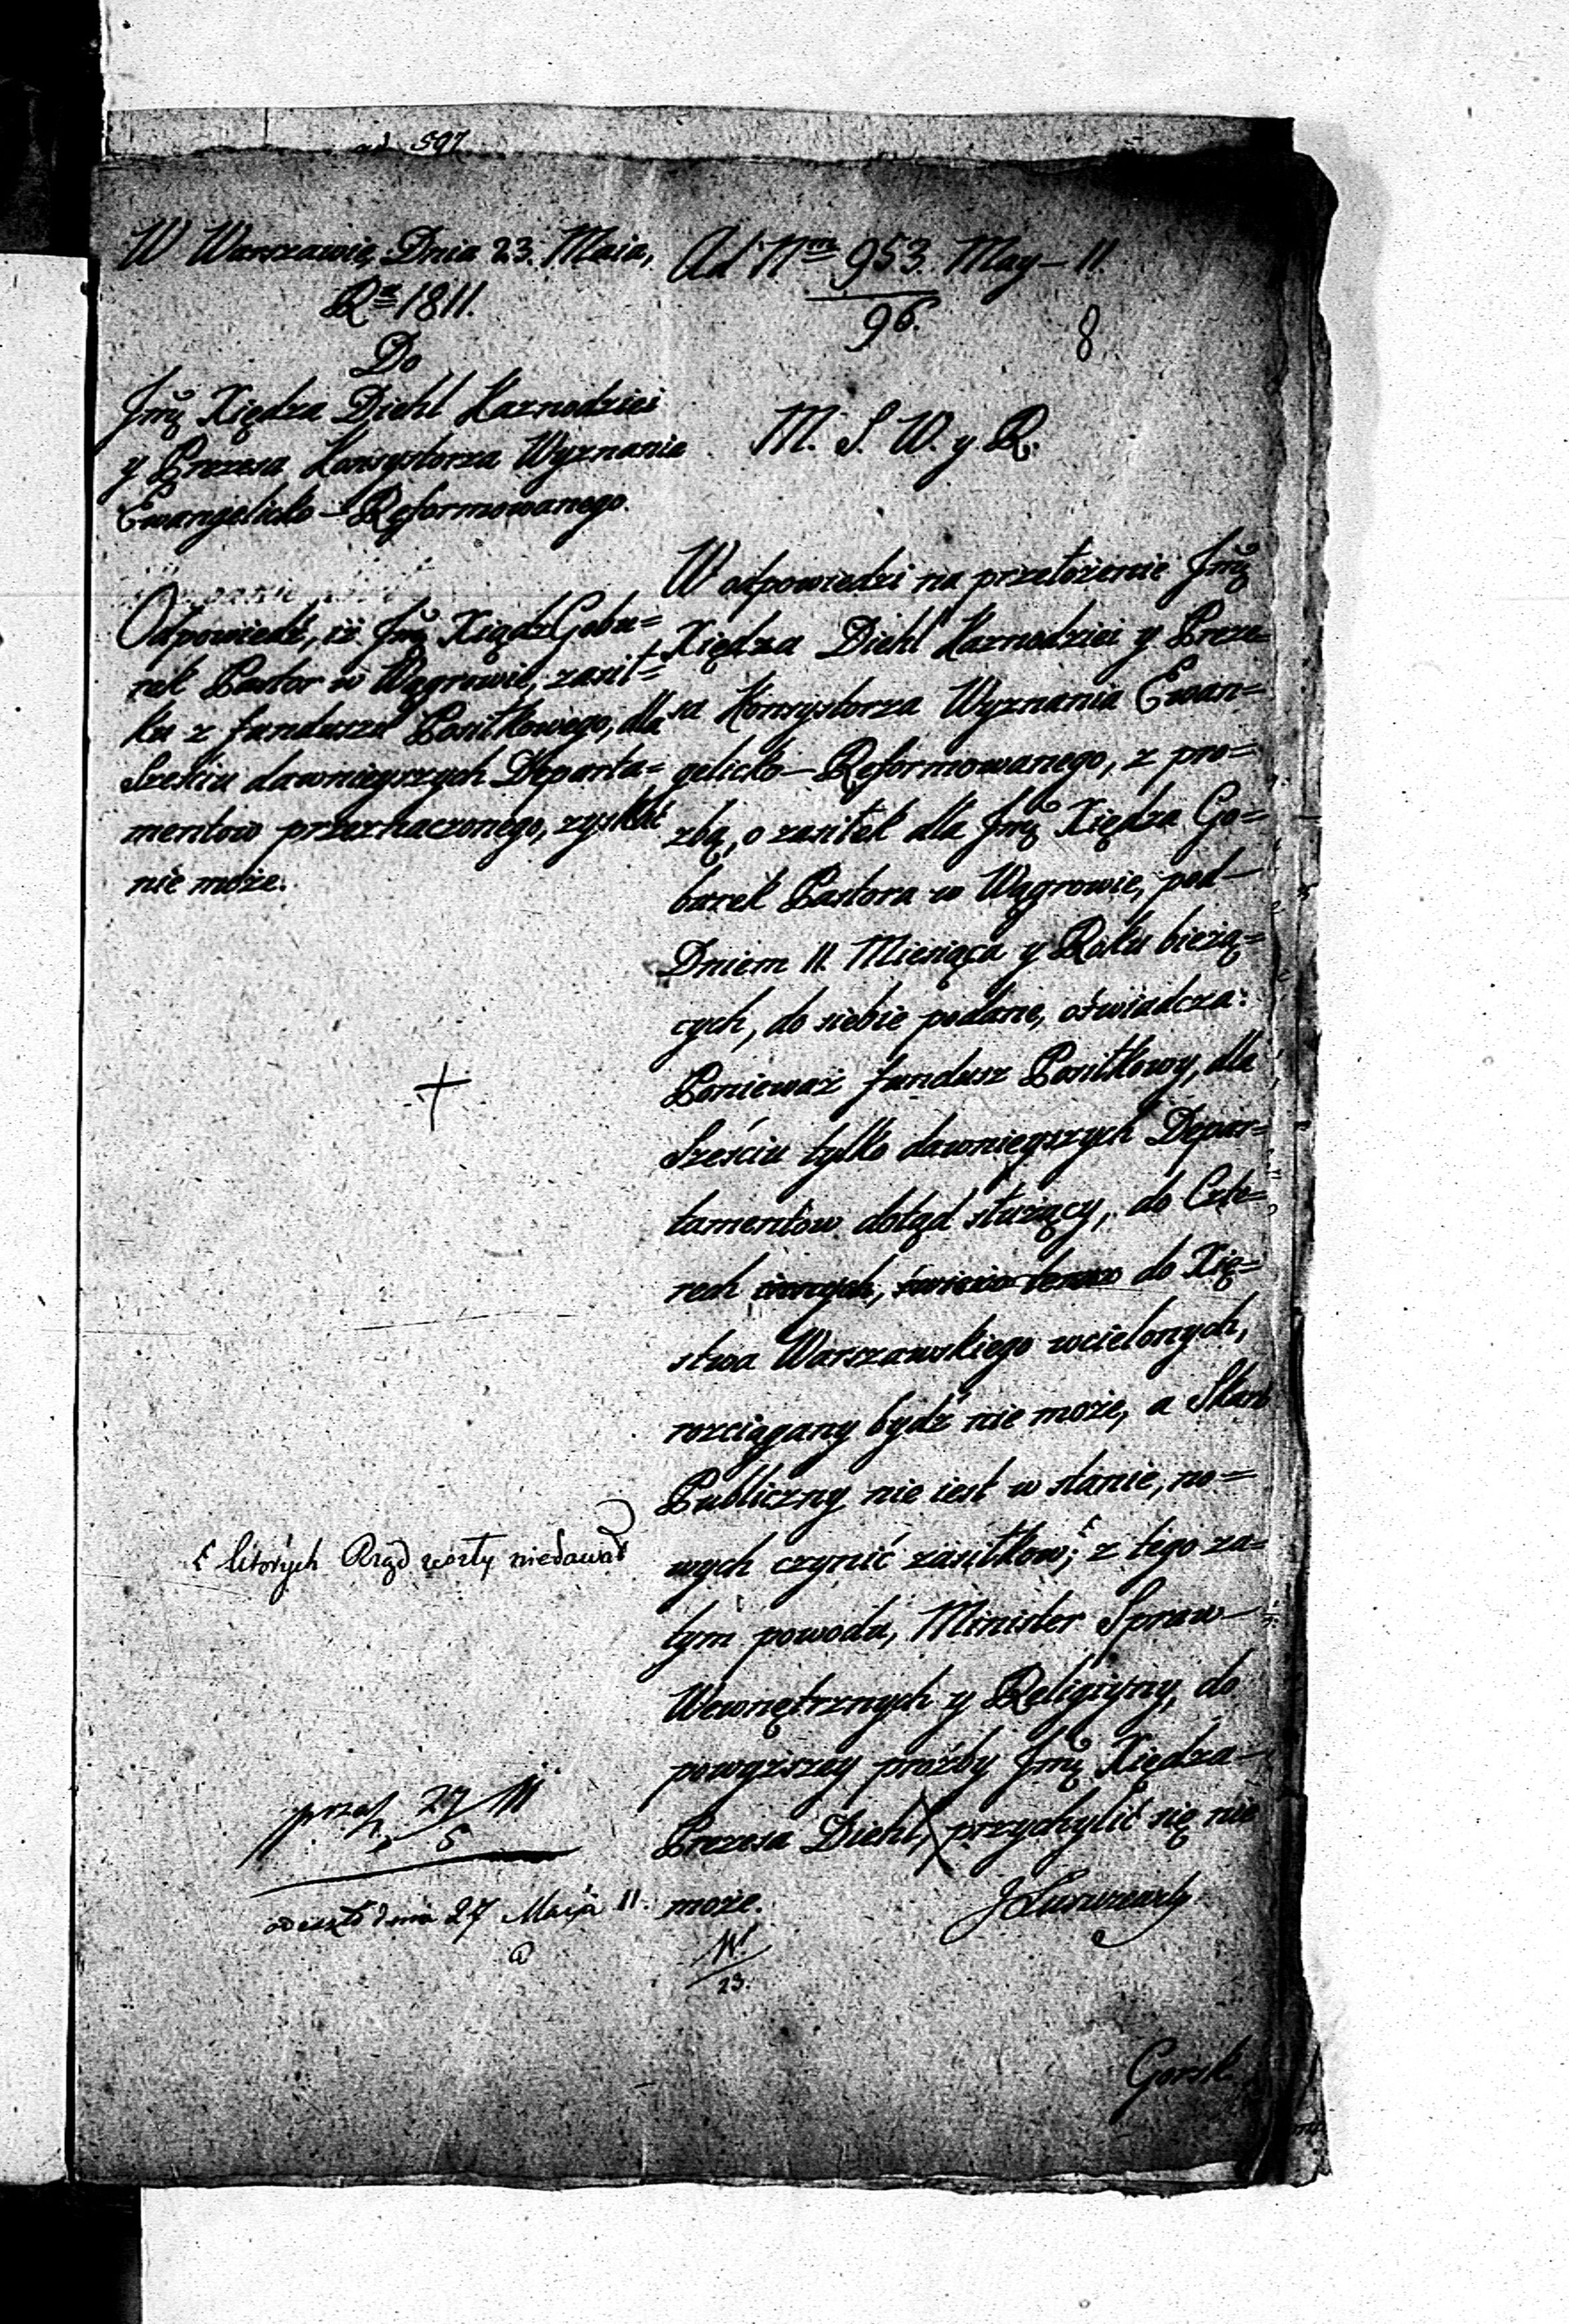 ad 597
W Warszawie, Dnia 23. Maia,
Ru 1811.
Do
Jmę Xiędza Diehl Kaznodziei
y Prezesa Konsystorza Wyznania
Ewangelicko-Reformowanego.
Odpowiedź, iż Jmę Xiądz Geba=
rek Pastor w Węgrowie, zasił=
ku z funduszu Posiłkowego, dla
Sześciu dawnieyszych Departa=
mentow przeznaczonego, zyskać
nie może.
Ad Nrm 953. May - 11.
96.
8
M. S. W. y R.
W odpowiedzi na przełożenie Jmę
Xiędza Diehl Kaznodziei y Preze=
sa Konsystorza Wyznania Ewan=
gelicko-Reformowanego, z pro=
zbą, o zasiłek dla Jmę Xiędza Ge=
barek Pastora w Węgrowie, pod-
Dniem 11. Miesiąca y Roku bieżą=
cych, do siebie podane, oświadcza:
Ponieważ fundusz Posiłkowy, dla
Sześciu tylko dawnieyszych Depar=
tamentow dotąd służący, do Czte=
rech innych, do Xię=
stwa Warszawskiego wcielonych,
rozciągany bydź nie może, a Skarb
Publiczny nie iest w stanie, no=
wych czynić zasiłkow; z tego za=
tym powodu, Minister Spraw-
Wewnętrznych y Religiyny, do
powyższey proźby Jmę Xiędza-
Prezesa Diehl, przychylić się nie
może.
których Rząd zeszły niedawał
27/5 11
odeszło dnia 27 Maja 11.
W
23.